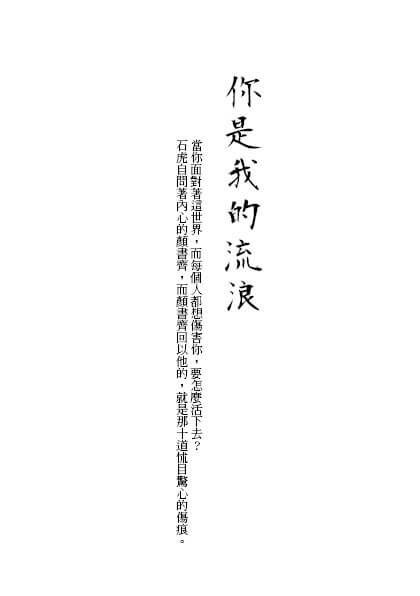 你是我的流浪
當你面對著這世界，而每個人都想傷害你，要怎麼活下去？
石虎自問著內心的顏書齊，而顏書齊回以他的，就是那十道怵目驚心的傷痕。